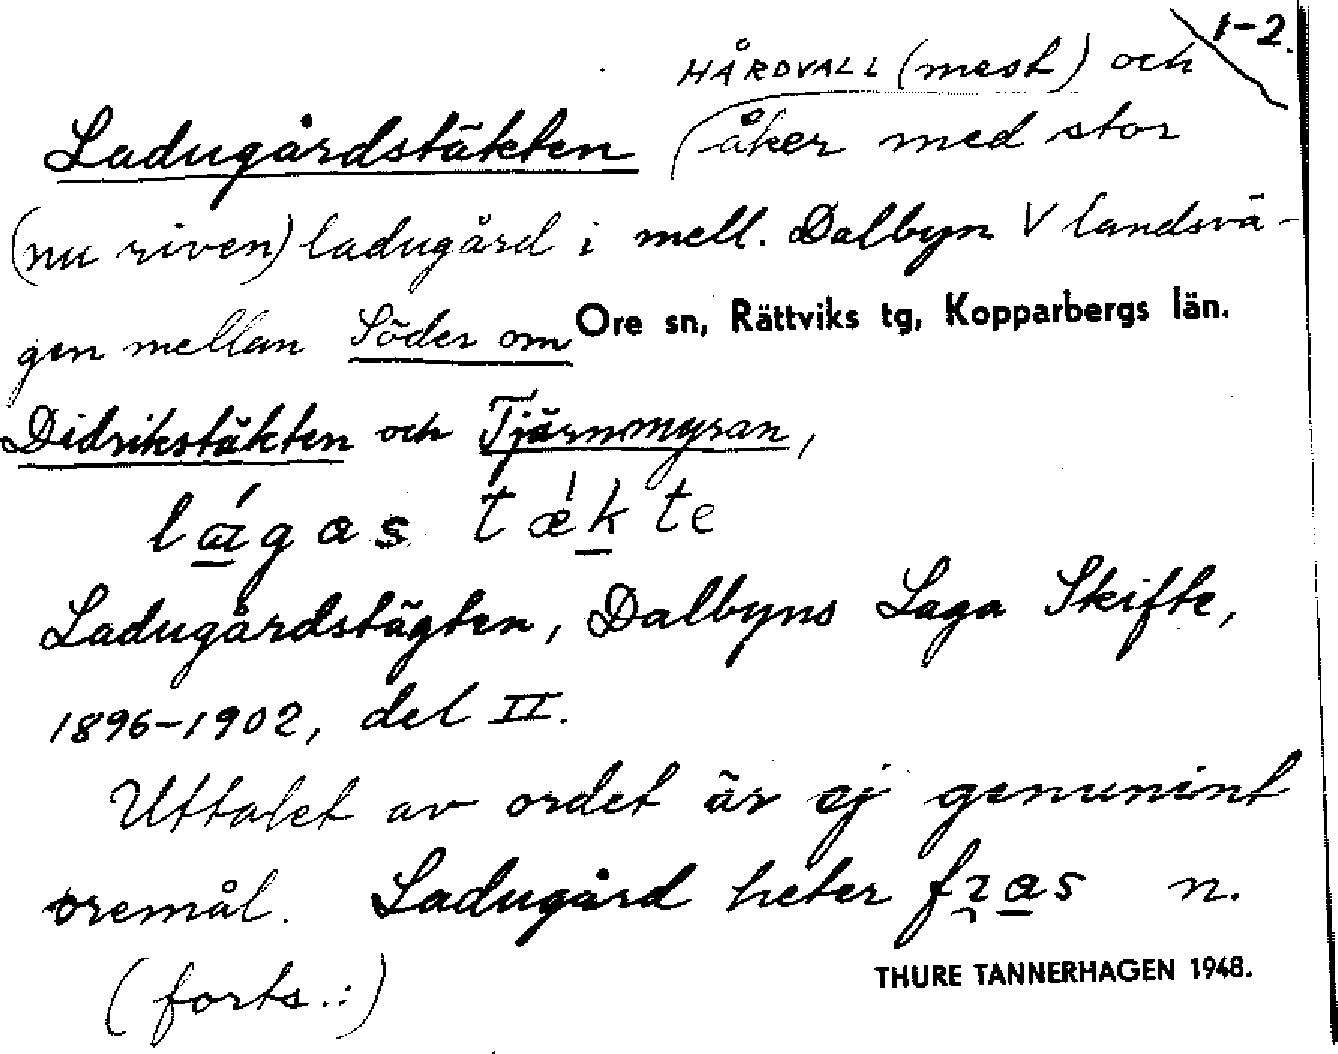 1-2.
HÅRDVALL (mest) och
Ladugårdstäkten (åker med stor
(nu riven) ladugård i mell. Dalbyn V landsvä-
gen mellan Söder om Ore sn, Rättviks tg, Kopparbergs län.
Didrikstäkten och Tjärnmyran,
lágas tǽkte
Ladugårdstägten, Dalbyns Laga Skifte,
1896-1902, del II.
Uttalet av ordet är ej genunint
oremål. Ladugård heter n.
(forts.:)
THURE TANNERHAGEN 1948.